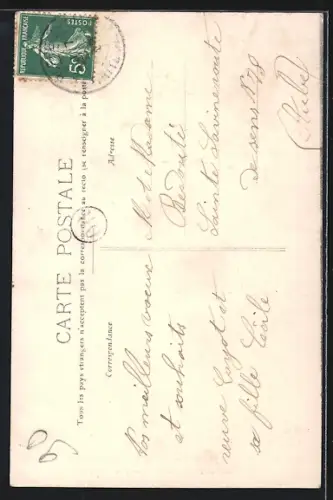 CARTE POSTALE
Tous les pays étrangers n'acceptent pas la correspondance au recto (se renseigner à la poste)
Correspondance
Adresse
REPUBLIQUE FRANÇAISE
POSTES
5c
Vos meilleurs voeux
et souhaits
veuve Guyot et
sa fille Cécile
M et Madame
Sainte Savine route
de sens N 78
(Aube)